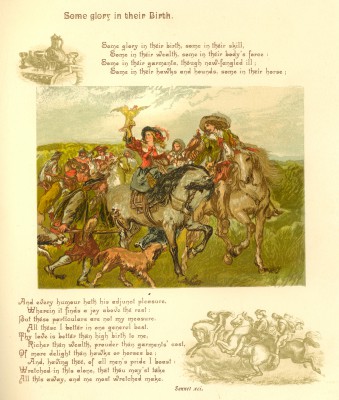 Some glory in their Birth.
Some glory in their birth, some in their skill,
Some in their wealth, some in their body's force;
Some in their garments, though new-fangled ill;
Some in their hawks and hounds, some in their horse;
And every humour hath his adjunct pleasure,
Wherein it finds a joy above the rest:
But these particulars are not my measure,
All these I better in one general best.
Thy love is better than high birth to me,
Richer than wealth, prouder than garments' cost,
Of more delight than hawks or horses be;
And, having thee, of all men's pride I boast:
Wretched in this alone, that thou may'st take
All this away, and me most wretched make.
Sonnet xci.